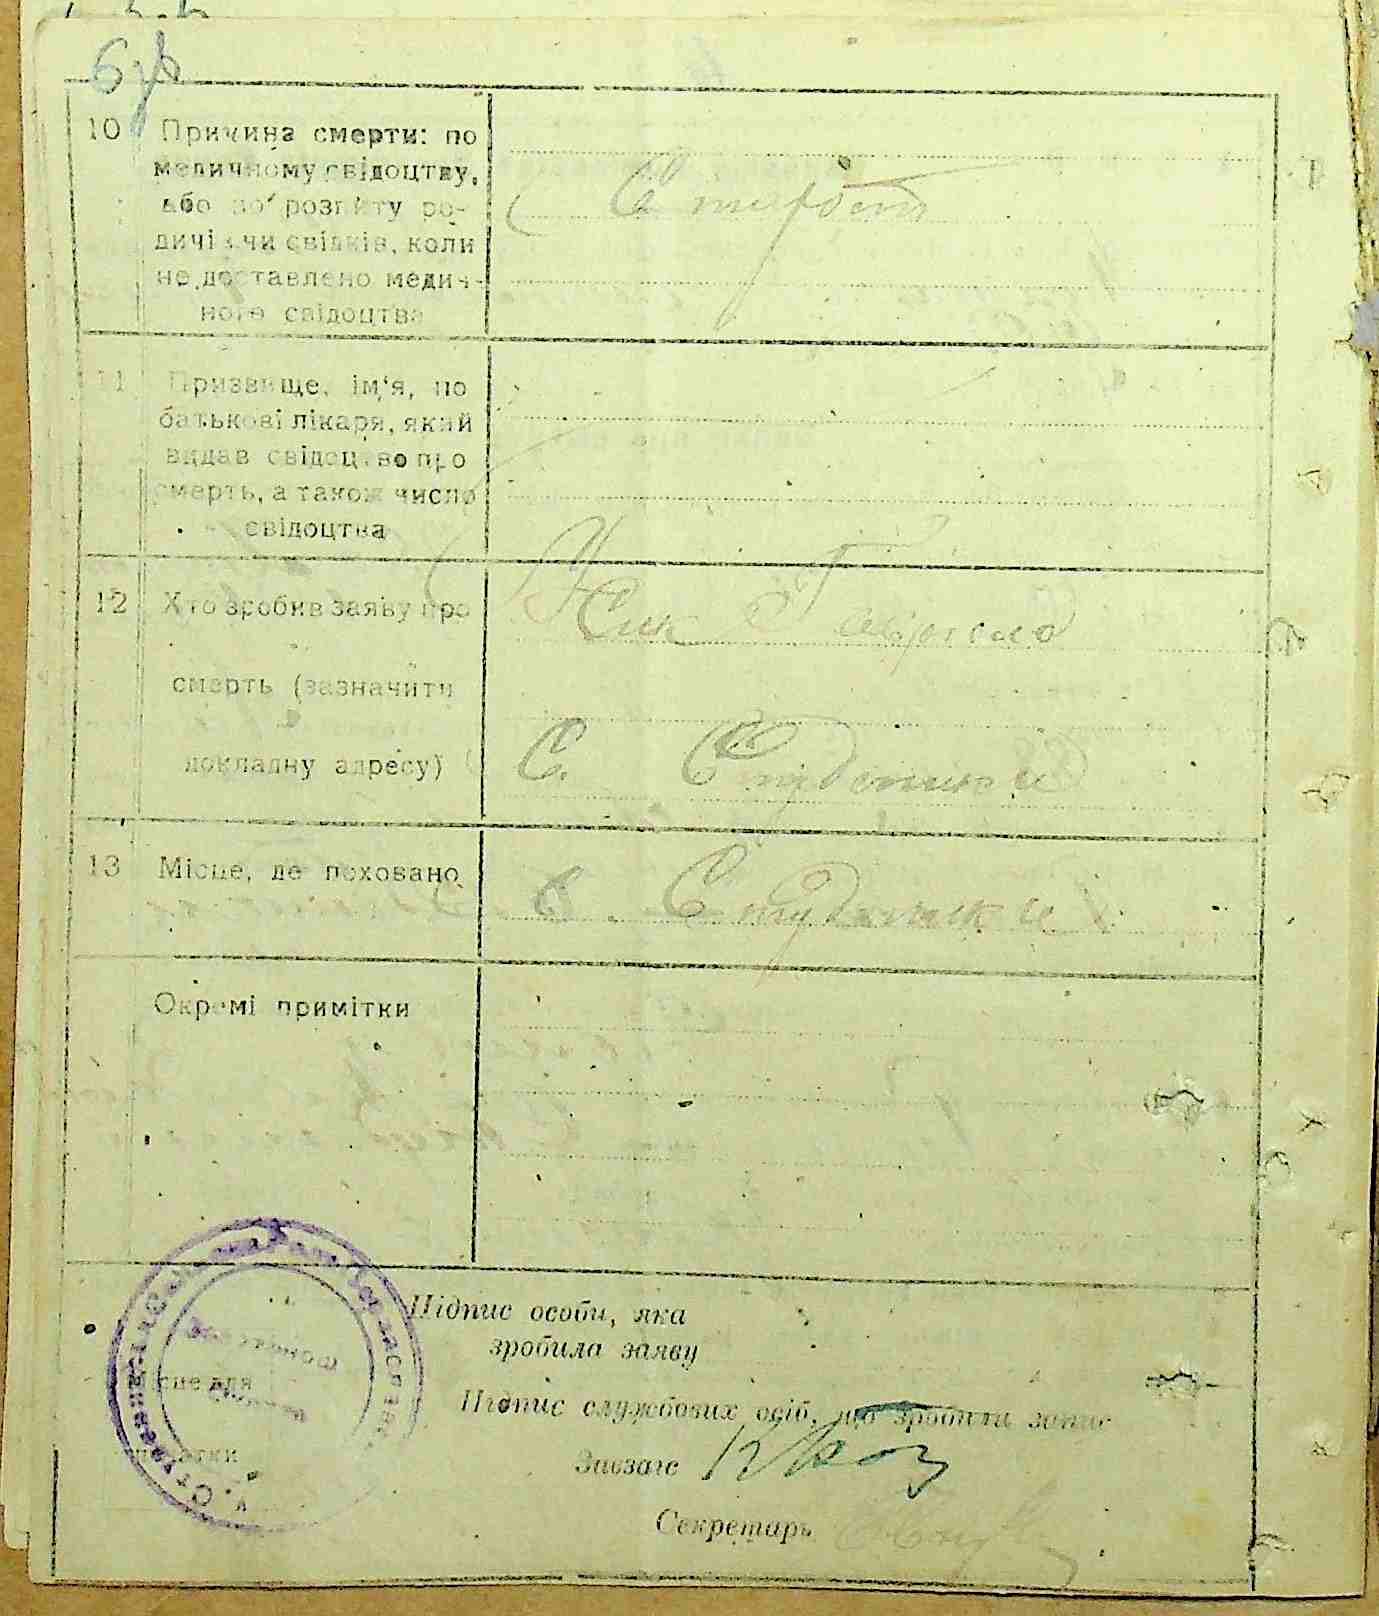 6 зв
10 Причина смерти: по
медичному свідоцтву,
або по розпиту ро-
дичів чи свідків, коли
не доставлено медич-
ного свідоцтва
11 Призвище, ім'я, по
батькові лікаря, який
видав свідоцтво про
смерть, а також число
свідоцтва
12 Хто зробив заяву про
смерть (зазначити
докладну адресу)
С. Студеники
13 Місце, де поховано
С. Студеники
Окремі примітки
Підпис особи, яка
зробила заяву
Місце для
печатки
Підпис службових осіб, що зробили запис
Завзагс
Секретарь